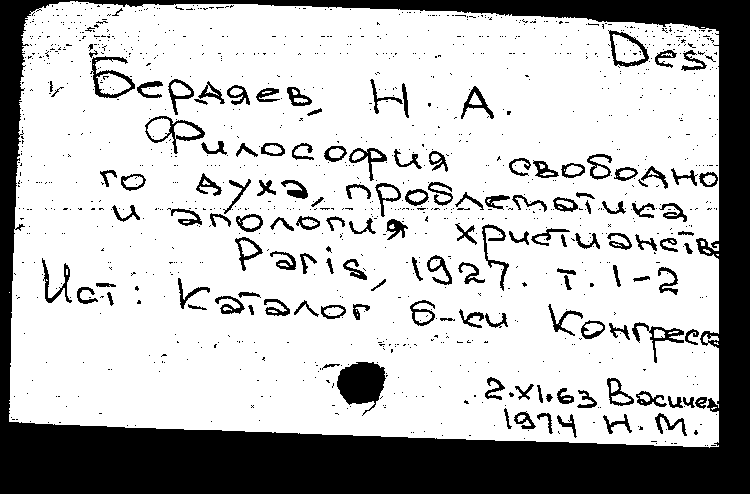 Des
Бердяев, Н. А.
Философия свободно
го духа, проблематика
и апология христианства
Paris, 1927. т. 1-2
Ист: Каталог б-ки Конгресса
2.XI.63
1974 Н.М.